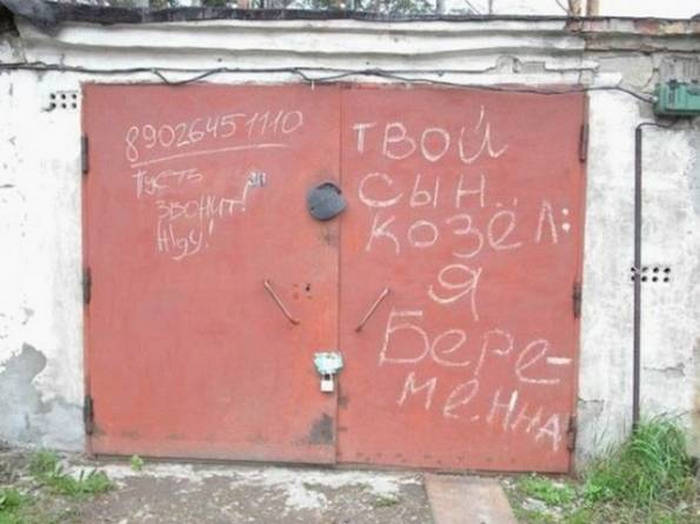 89026451110
Пусть
звонит!
Жду!
ТВОЙ
СЫН..
Козёл:
Я
Бере-
менна